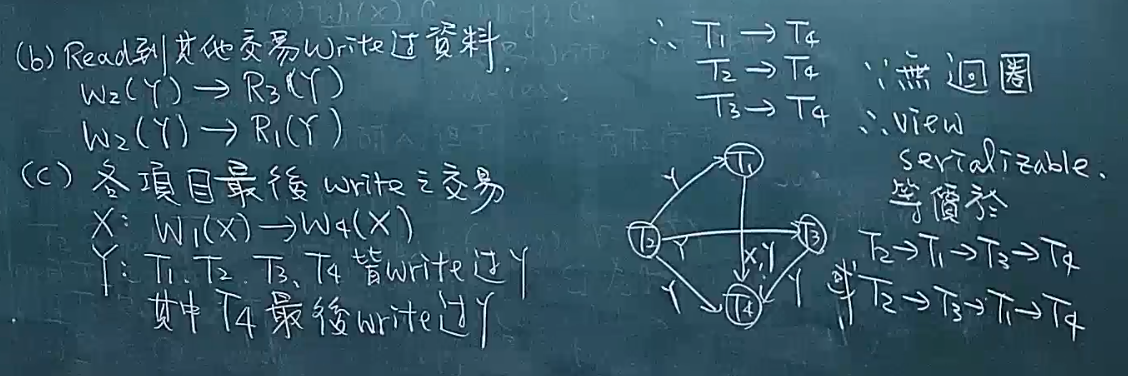 (b) Read到其他交易Write过資料.
W₂(Y) → R₃(Y)
W₂(Y) → R₁(Y)
(c) 各項目最後 write 之交易
X: W₁(X) → W₄(X)
Y: T₁、T₂、T₃、T₄ 皆write过Y
其中 T₄ 最後write过Y
∴ T₁ → T₄
T₂ → T₄
T₃ → T₄
T₁
Y
T₂
Y
T₃
X,Y
Y
Y
T₄
∵無迴圈
∴view
serializable.
等價於
T₂→T₁→T₃→T₄
或T₂→T₃→T₁→T₄